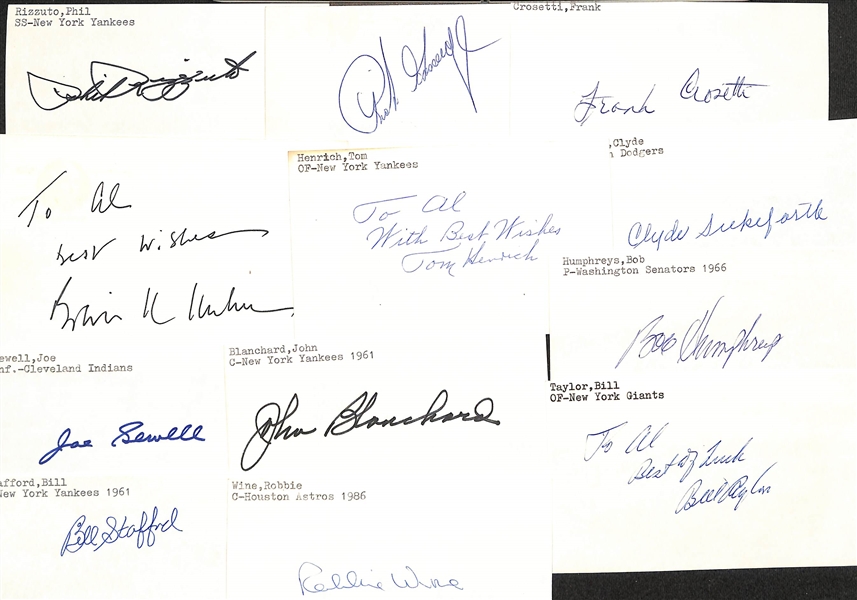 Rizzuto,Phil
SS-New York Yankees
Phil Rizzuto
Crosetti,Frank
Frank Crosetti
To Al
Best Wishes
Henrich,Tom
OF-New York Yankees
To Al
With Best Wishes
Tom Henrich
,Clyde
Dodgers
Clyde Sukeforth
Humphreys,Bob
P-Washington Senators 1966
Bob Humphreys
ewell,Joe
nf.-Cleveland Indians
Joe Sewell
Blanchard,John
C-New York Yankees 1961
John Blanchard
Taylor,Bill
OF-New York Giants
To Al
Best of Luck
Bill Taylor
afford,Bill
New York Yankees 1961
Bill Stafford
Wine,Robbie
C-Houston Astros 1986
Robbie Wine